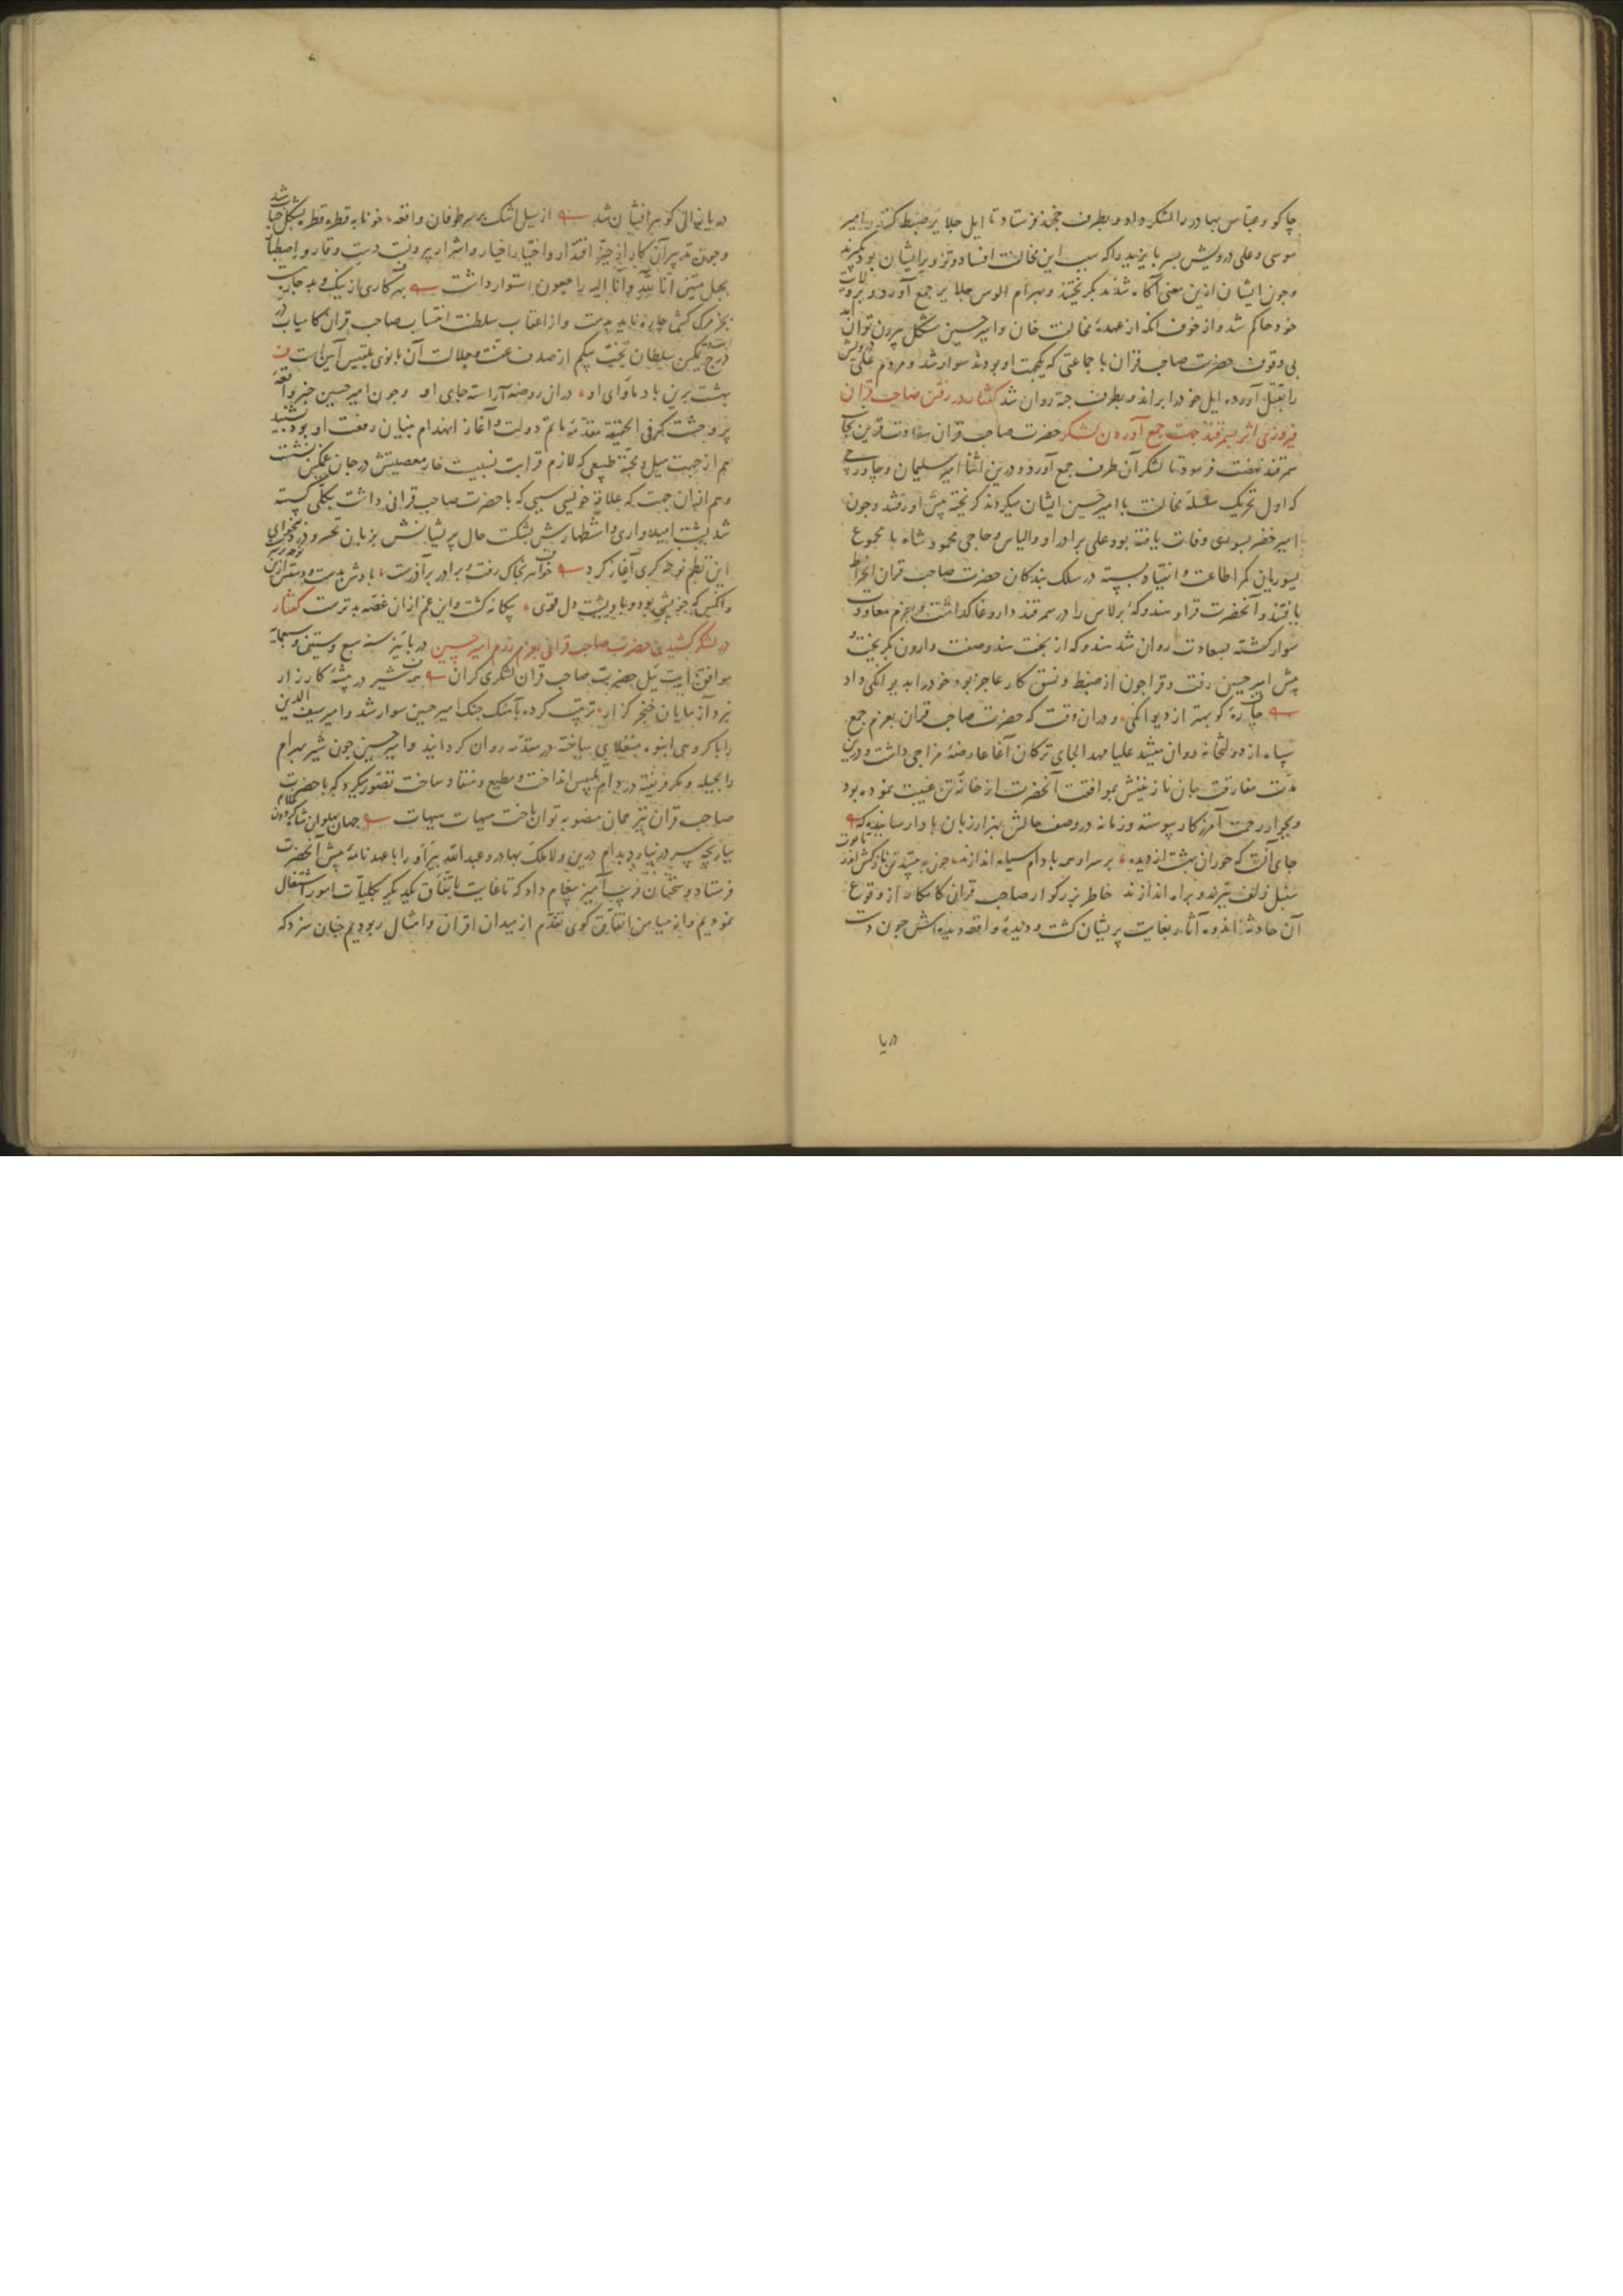 چاکو و عباس بهادر را لشکر داد و بطرف خجند فرستاد تا ایل جلایر ضبط کنند و امیر
موسی و علی درویش پسر بایزید را که سبب این مخالفت افساد و تزویر ایشان بود بگیرند
و چون ایشان ازین معنی آگاه شدند بگریختند و بهرام الوس جلایر جمع آورد و بر ولایت
خود حاکم شد و از خوف آنکه از عهدهٔ مخالفت خان و امیر حسین مشکل بیرون توان آمد
بی وقوف حضرت صاحب قران با جماعتی که یکجهت او بودند سوار شد و مردم علی درویش
را بقتل آورده ایل خود را براند و بطرف جته روان شد گفتار در رفتن صاحب قران
فیروزی اثر بسمرقند جهت جمع آوردن لشکر حضرت صاحب قران سعادت قرین بجانب
سمرقند نهضت فرمود تا لشکر آن طرف جمع آورد و درین اثنا امیر سلیمان و چاورچی
که اول تحریک سلسلهٔ مخالفت با امیر حسین ایشان میکردند گریخته پیش او رفتند و چون
امیر خضر یسوری وفات یافته بود علی برادر او و الیاس و حاجی محمود شاه با مجموع
یسوریان کمر اطاعت و انقیاد بسته در سلک بندگان حضرت صاحب قران انخراط
یافتند و آنحضرت قرا هندوکهٔ برلاس را در سمرقند داروغا گذاشت و بعزم معاودت
سوار گشته بسعادت روان شد هندوکه از بخت هندو صفت وارون بگریخت و
پیش امیر حسین رفت و قرا چون از ضبط و نسق کار عاجز بود خود را بدیوانگی داد
چاره کو بهتر از دیوانگی و در آن وقت که حضرت صاحب قران بعزم جمع
سپاه از دولتخانه روان میشد علیا مهد الجای ترکان آغا عارضهٔ مزاجی داشت و درین
مدت مفارقت جان نازنینش بموافقت آنحضرت از خانهٔ تن غیبت نموده بود
و بجوار رحمت آمرزگار پیوسته و زمانه در وصف حالش بهزار زبان با وا رسانیده که
جای آنست که حوران بهشت از دیده بر سر او همه بادام سیه اندازند چون به تن نازکش اندر تابوت
سنبل زلف ببرند و براه اندازند خاطر بزرگوار صاحب قرانی کامکار از وقوع
آن حادثهٔ اندوه آثار بغایت پریشان گشت و دیدهٔ واقعه دیده اش چون دست
دریا
دریا نوالش گوهر افشان شد از سیل اشک بر سر طوفان واقعه خونابه قطره قطره بشکل حباب شد
و چون تدبیر آن کار از حیز اقتدار و اختیار اخیار و اشرار بیرونست دست وقار و اصطبار
بحبل متین انا لله و انا الیه راجعون استوار داشت بهر کاری از نیک و بد چاره هست
بجز مرگ کش چاره ناید بدست و از اعقاب سلطنت انتساب صاحب قران کامیاب در
درج تمکین سلطان بخت بیگم از صدف عفت و جلالت آن بانوی بلقیس آیین است
بهشت برین باد ماوای او در آن روضه آراسته جای او و چون امیر حسین خبر واقعه
پر وحشت که فی الحقیقه مقدمهٔ ماتم دولت و آغاز انهدام بنیان رفعت او بود شنید
هم از جهت میل و محبة طبیعی که لازم قرابت نسبیست خار مصیبتش در جان غمگین نشست
و هم از آن جهت که علاقهٔ خویشی سببی که با حضرت صاحب قرانی داشت بکلی گسسته
شد پشت امیدواری و استظهارش بشکست حال پریشانش بزبان تحسر
این نظم نوحه گری آغاز کرد خواهر بخاک رفت و برادر بر آذرست
وانکس که جز پشتی بود و بدو پشت دل قوی بیگانه گشت و این غم از آن غصه بدترست گفتار
در لشکر کشیدن حضرت صاحب قرانی بعزم رزم امیر حسین در پاییز سنه سبع و ستین و سبعمایه
موافق ایت ییل حضرت صاحب قران لشکری گران همه شیر در بیشهٔ کارزار
نبرد آزمایان خنجر گزار ترتیب کرده بآهنگ جنگ امیر حسین سوار شد و امیر سیف الدین
را با گروهی انبوه بمنغلای ساخته در مقدمه روان گردانید و امیر حسین چون شیر بهرام
را بحیله و مکر فریفته در دام تلبیس انداخت و مطیع و منقاد ساخت تصور میکرد که با حضرت
صاحب قران نیز همان منصوبه توان باخت هیهات هیهات جهان پهلوان شاه گردون غلام
ببازیچه سر در نیارد بدام درین ولا ملک بهادر و عبد الله پیر او را با عهدنامه پیش آنحضرت
فرستاد و سخنان فریب آمیز پیغام داد که تا غایت باتفاق یکدیگر بکلیات امور اشتغال
نمودیم و از میامن اتفاق گوی تقدم از میدان اقران و امثال ربودیم چنان سزد که